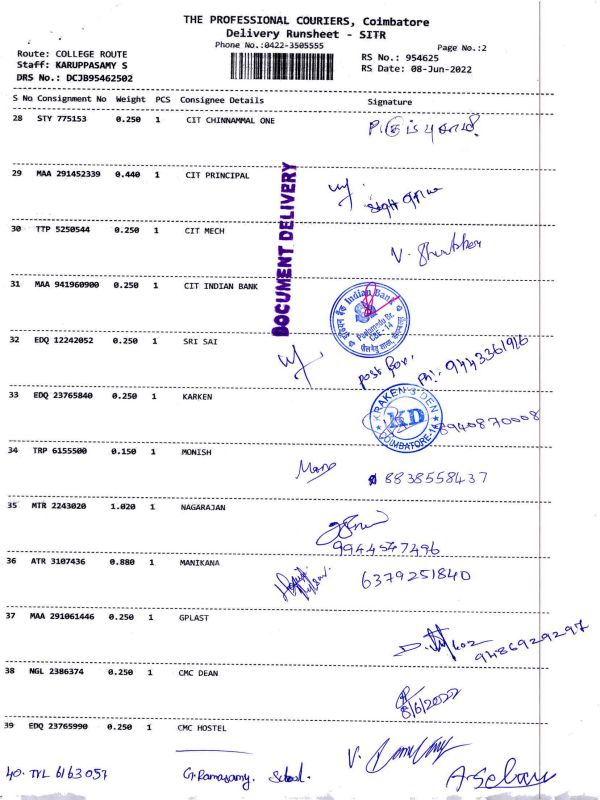 THE PROFESSIONAL COURIERS, Coimbatore
Delivery Runsheet - SITR
Phone No.:0422-3505555
Page No.:2
Route: COLLEGE ROUTE
Staff: KARUPPASAMY S
DRS No.: DCJB95462502
RS No.: 954625
RS Date: 08-Jun-2022
S No Consignment No Weight PCS Consignee Details Signature
28 STY 775153 0.250 1 CIT CHINNAMMAL ONE
29 MAA 291452339 0.440 1 CIT PRINCIPAL
30 TTP 5250544 0.250 1 CIT MECH
DOCUMENT DELIVERY
31 MAA 941960900 0.250 1 CIT INDIAN BANK
Indian Bank
CBE - 14
32 EDQ 12242052 0.250 1 SRI SAI
Ph: 9443361916
33 EDQ 23765840 0.250 1 KARKEN
KRAKEN'S DEN
KD
COIMBATORE-14
8940870008
34 TRP 6155500 0.150 1 MONISH
8838558437
35 MTR 2243020 1.020 1 NAGARAJAN
9944547496
36 ATR 3107436 0.880 1 MANIKANA
6379251840
37 MAA 291061446 0.250 1 GPLAST
9486929297
38 NGL 2386374 0.250 1 CMC DEAN
8/6/2022
39 EDQ 23765990 0.250 1 CMC HOSTEL
40. TVL 6163057 G. Ramasamy. School.